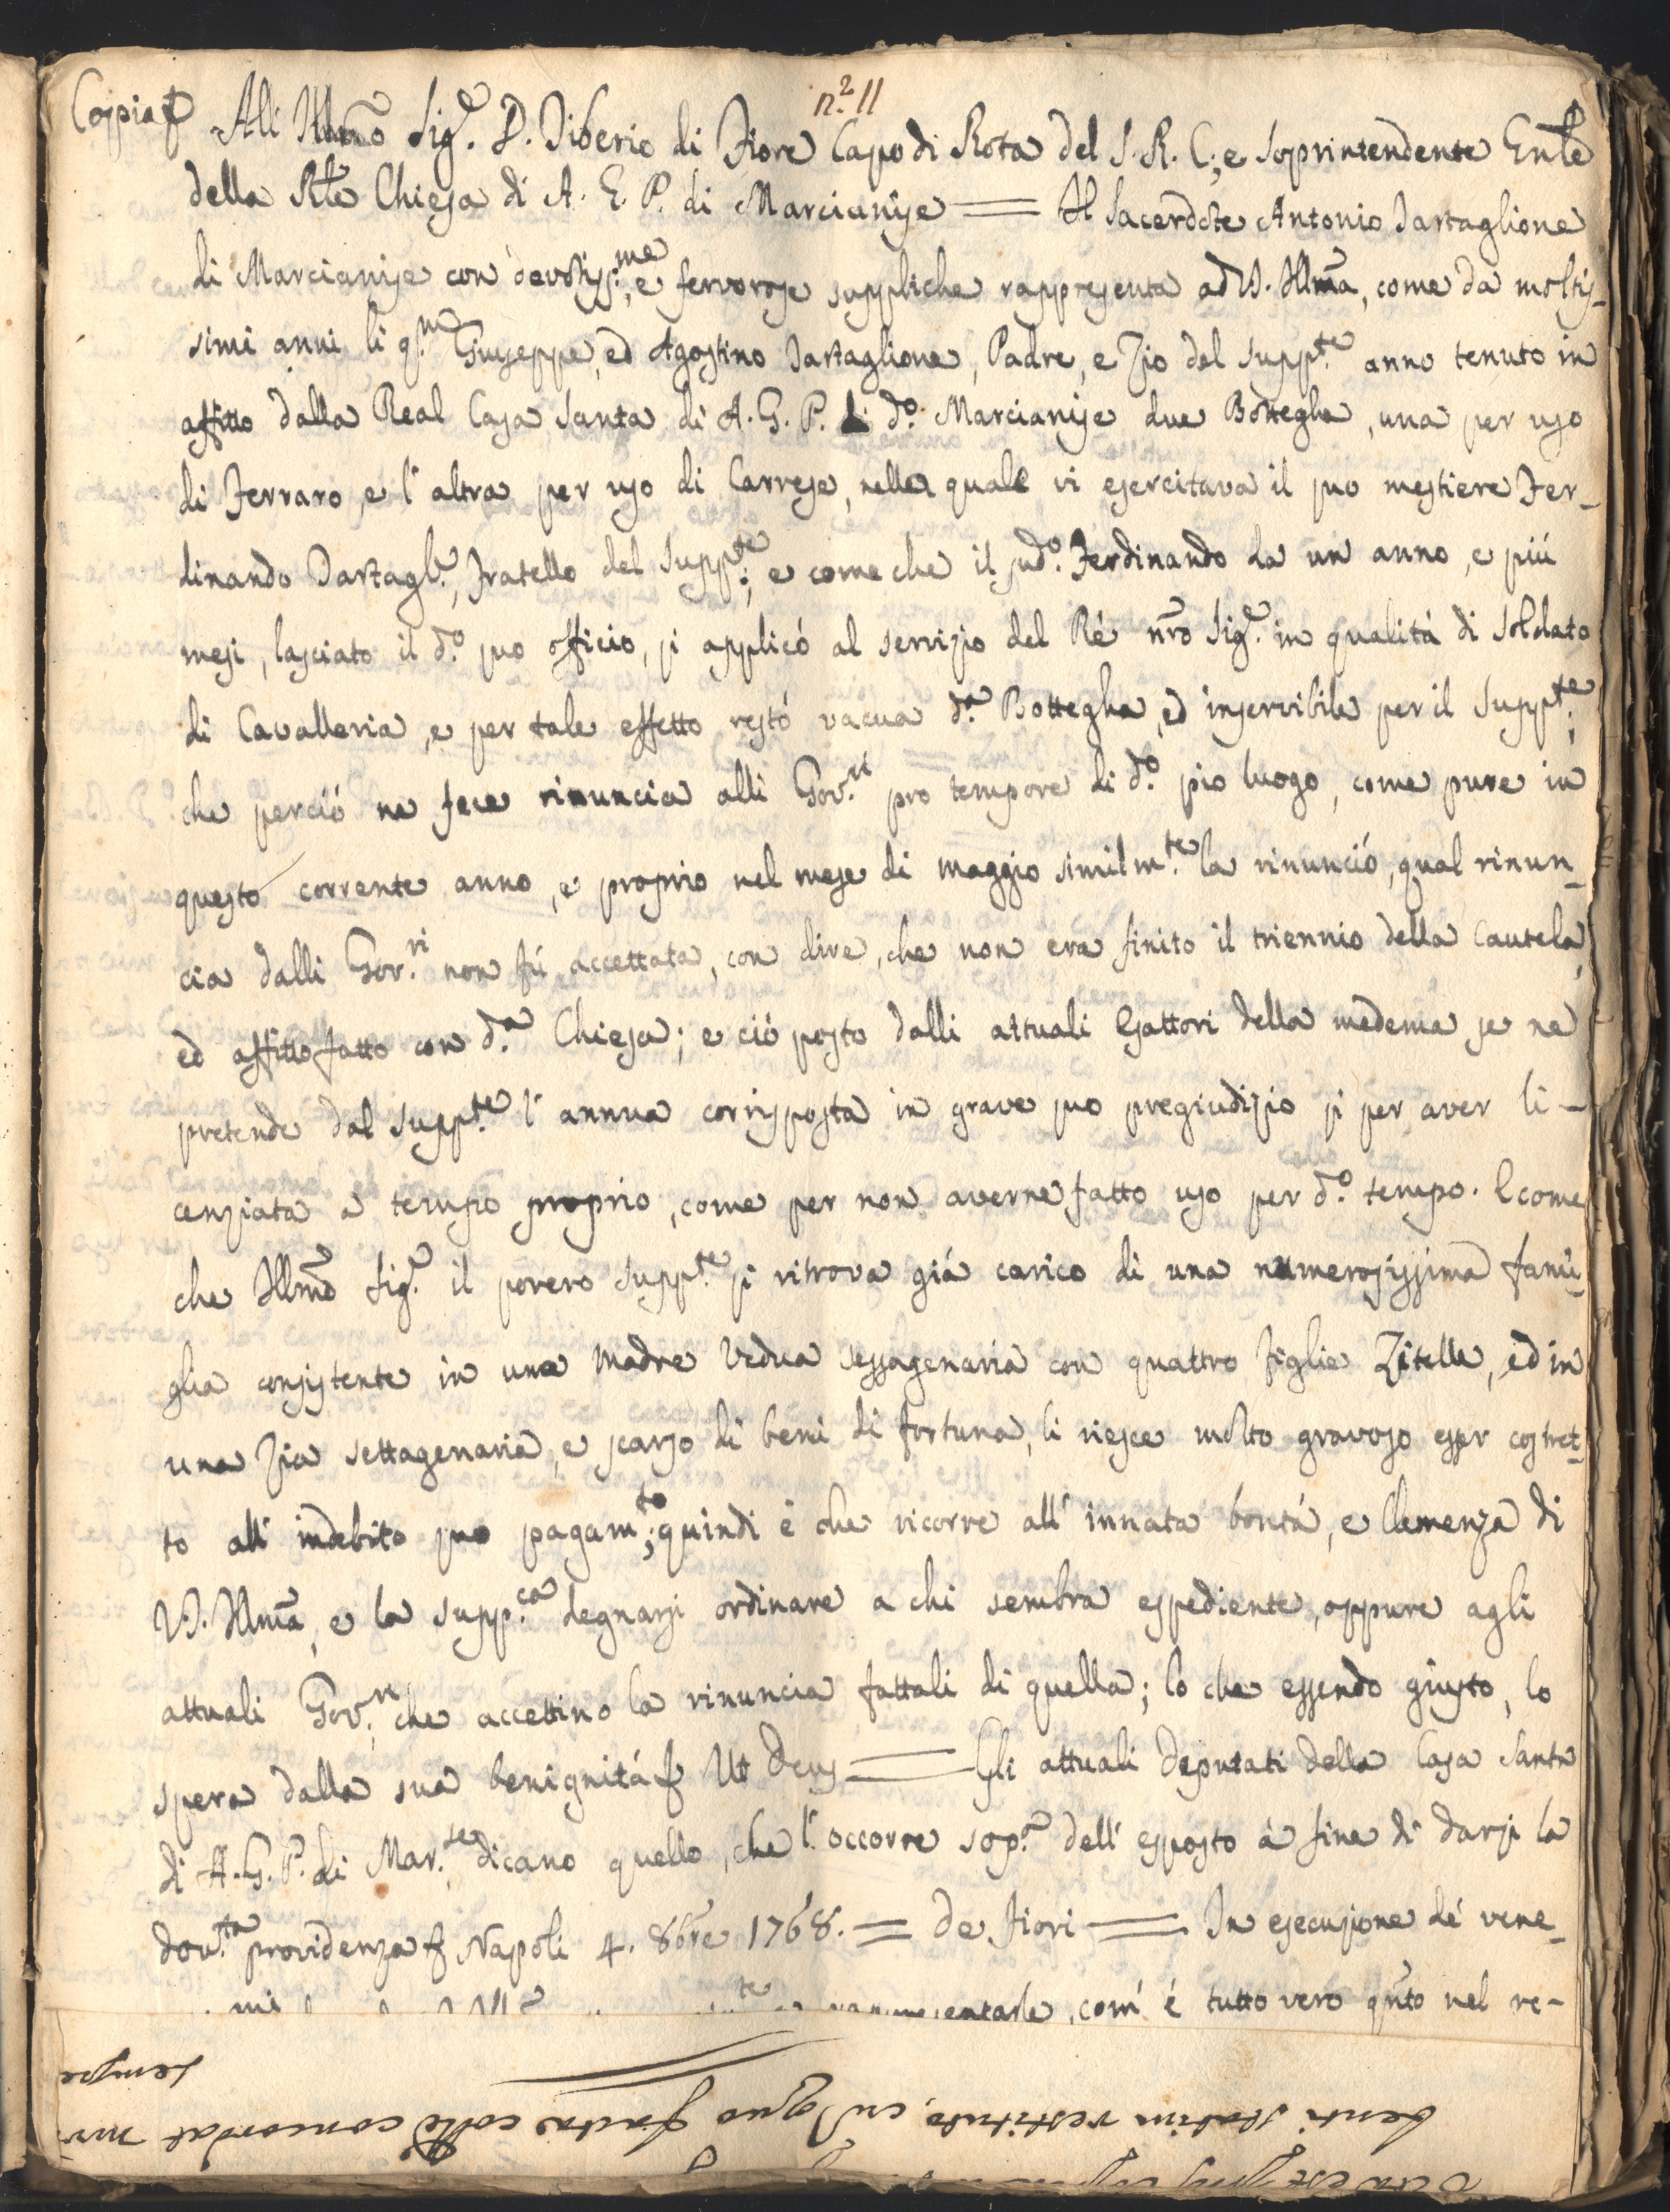 n.º 11
Copia Alli Illmo Sig.e D. Tiberio di Fiore Capo di Rota del S. R. C., e Soprintendente Enle
della Rle Chiesa di A. G. P. di Marcianise = Il Sacerdote Antonio Tartaglione
di Marcianise con devotiss:me, e fervorose suppliche rappresenta ad V. Illma, come da moltis-
simi anni li q.m Giuseppe, ed Agostino Tartaglione, Padre, e Zio del Supp.te anno tenuto in
affitto dalla Real Casa Santa di A. G. P. di d.o Marcianise due Botteghe, una per uso
di Ferraro, e l'altra per uso di Carrese, nella quale vi esercitava il suo mestiere Fer-
dinando Tartagl.e, Fratello del Supp.te; e come che il sud.o Ferdinando da un anno, e più
mesi, lasciato il d.o suo officio, si applicò al servizio del Rè nro Sig.e in qualità di Soldato
di Cavalleria, e per tale effetto restò vacua d.a Bottegha, ed inservibile per il Supp.te;
che perciò ne fece rinuncia alli Gov.ri pro tempore di d.o pio luogo, come pure in
questo corrente anno, e proprio nel mese di maggio similm.te la rinunciò, qual rinun-
cia dalli Gov.ri non fù accettata, con dire, che non era finito il triennio della Cautela,
ed affitto fatto con d.a Chiesa; e ciò posto dalli attuali Esattori della medema se ne
pretende dal Supp.te l'annua corrisposta in grave suo pregiudizio si per aver li-
cenziata a tempo proprio, come per non averne fatto uso per d.o tempo. E come
che Illmo Sig.e il povero Supp.te si ritrova già carico di una numerosissima fami-
glia consistente in una Madre Vedua sessagenaria con quattro figlie Zitelle, ed in
una Zia settagenaria, e scarso di beni di fortuna, li riesce molto gravoso esser costret-
to all'indebito suo pagam.to; quindi è che ricorre all'innata bontà, e Clemenza di
V. Illma, e la supp.ca degnarsi ordinare a chi sembra espediente, oppure agli
attuali Gov.ri che accettino la rinuncia fattali di quella; lo che essendo giusto, lo
spera dalla sua benignità Ut Deus = Gli attuali Deputati della Casa Santa
di A. G. P. di Mar.se dicano quello, che l'occorre sop.a dell'esposto à fine di darsi la
dov.ta providenza Napoli 4. 8bre 1768. = de Fiori = In esecuzione dè vene-
com'è tutto vero qnto nel re-
semper
statim restituto, cum quo facta colle concordat